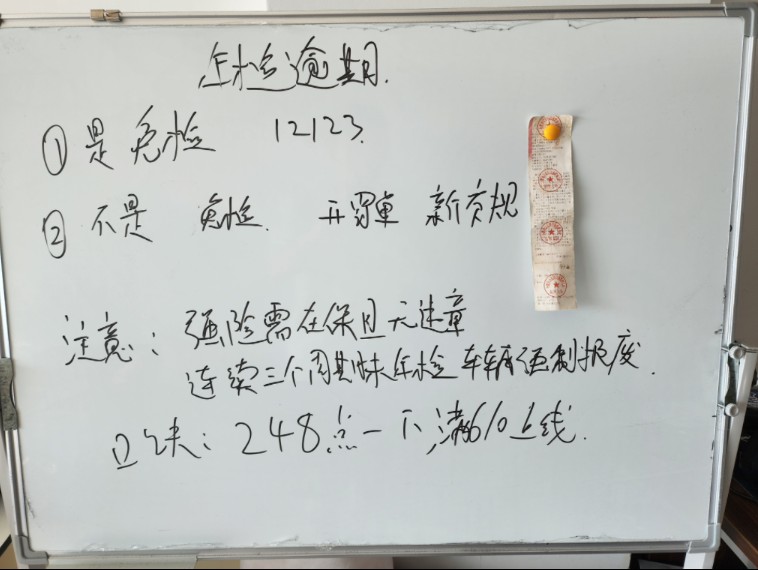 年检逾期.
① 是免检 12123.
② 不是 免检. 开罚单 新交规
注意: 强险需在保且无违章
连续三个周期未年检车辆强制报废.
口诀: 248点一下满610上线.